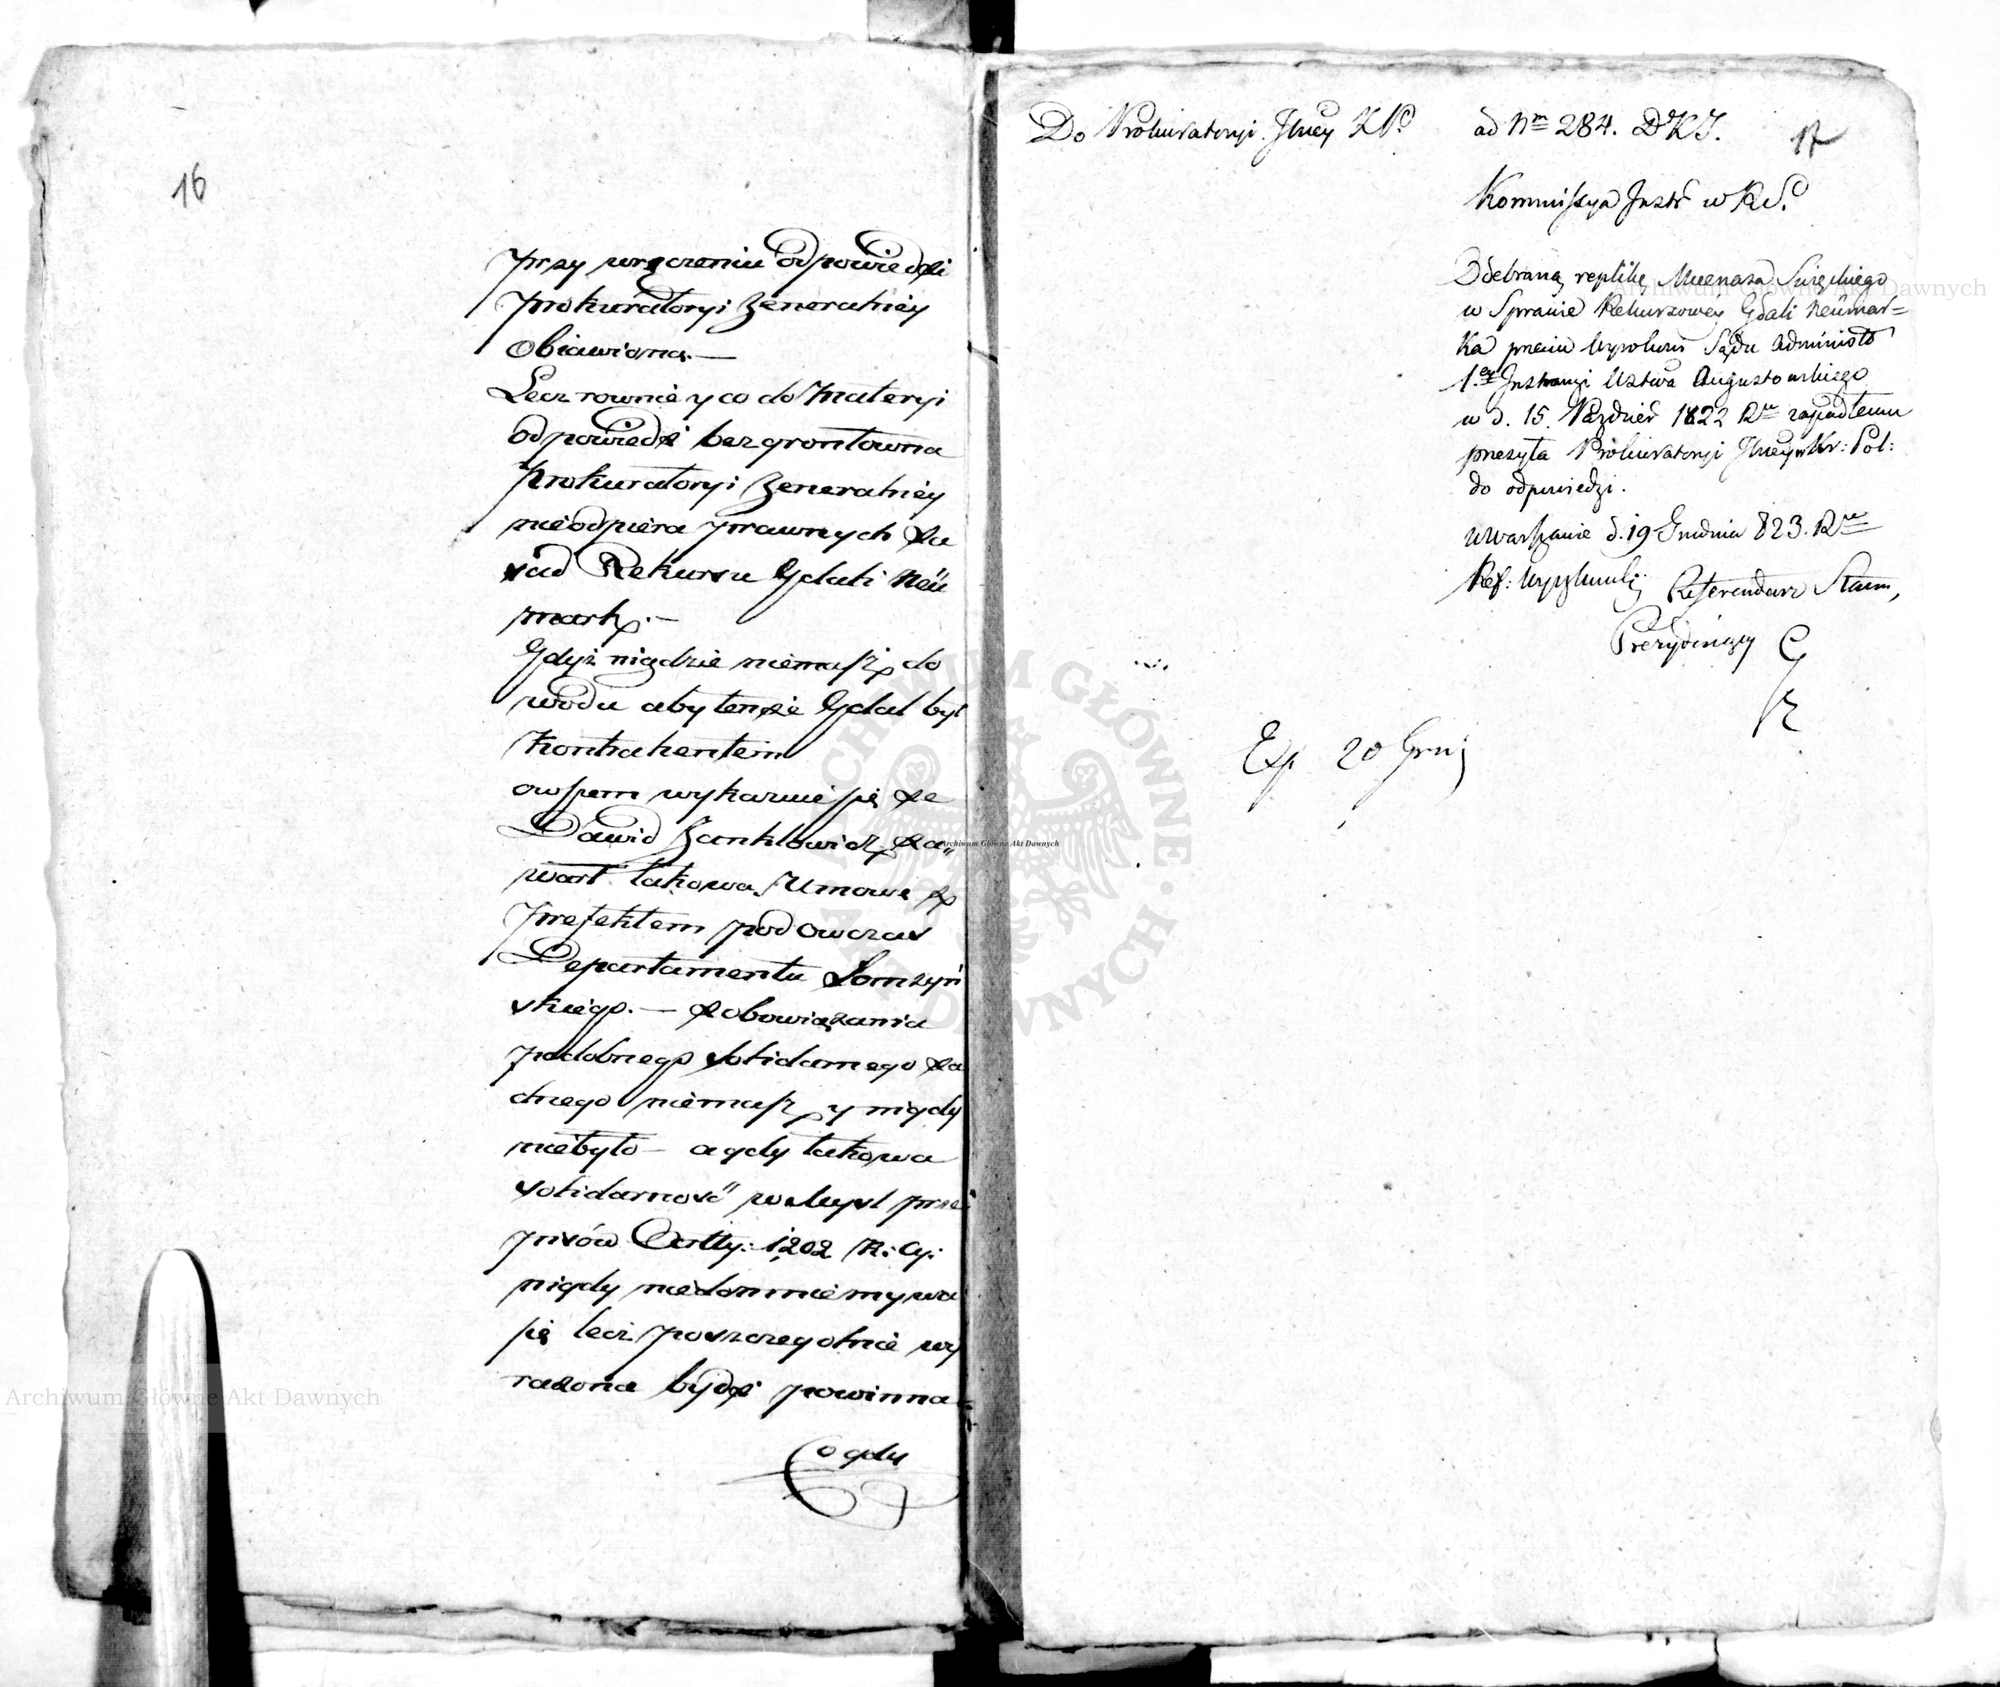 16
przy wręczeniu odpowiedzi
prokuratoryi Generalney
Obiawiona. —
Lecz rownie y co do Materyi
odpowiedź bezgrontowna
Prokuratoryi Generalney
nieodpiera prawnych za
sad Rekursu Gdali Neü
mark. —
Gdyż nigdzie niemasz do
wodu aby tenże Gdal był
Kontrahentem
owszem wykazuie się że
Dawid Janklowicz za„
warł takową Umowę z
Prefektem podowczas
Departamentu Łomżyń
skiego. — zobowiązania
podobnego solidarnego ża
dnego niemasz y nigdy
niebyło — a gdy takowa
solidarność w myśl prze
pisów Artty: 1202 K: Cy:
nigdy niedomniemywa
się lecz poszczegolnie wy
rażona bydź powinna
Co gdy
Do Prokuratoryi Jlney KP.
ad Nm 284. DKJ.
17
Kommissya Instr w RS.
Odebraną replikę Mecenasa Swięckiego
w Sprawie Rekursowey Gdali Neümar=
ka przeciw Wyrokowi Sądu Administr
1.ey Instancyi Wztwa Augustowskiego
w d. 15 Paździer 1822 Ru zapadłemu
przesyła Prokuratoryi Jlney w Kr: Pol:
do odpowiedzi.
w Warszawie d. 19 Grudnia 823. Ru
Ref: Referendarz Stanu,
Prezyduiący
Exp 20 Grud
Archiwum Główne Akt Dawnych
Archiwum Główne Akt Dawnych
Archiwum Główne Akt Dawnych
ARCHIWUM GŁÓWNE AKT DAWNYCH